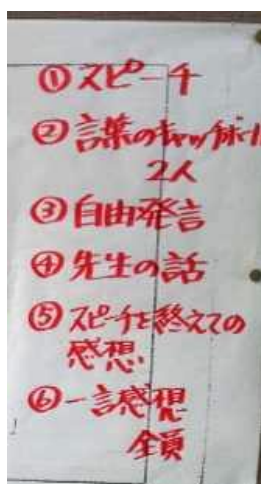 ①スピーチ
②言葉のキャッチボール
2人
③自由発言
④先生の話
⑤スピーチを終えての
感想
⑥一言感想
全員